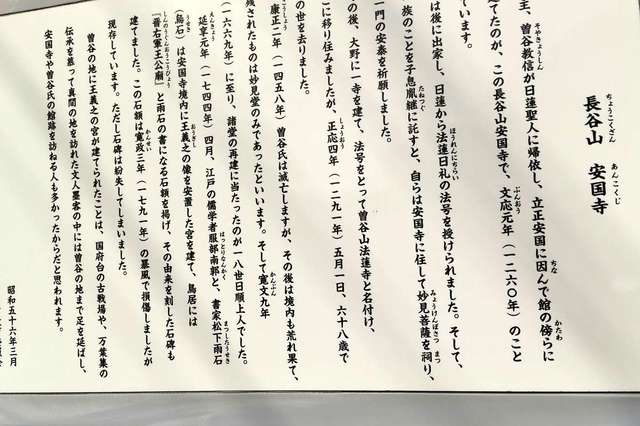 ちょうこくざん あんこくじ
長谷山 安国寺
そやきょうしん ちな かたわ
主、曽谷教信が日蓮聖人に帰依し、立正安国に因んで館の傍らに
ぶんおう
てたのが、この長谷山安国寺で、文応元年（一二六〇年）のこと
ています。
ほうれんにちらい
は後に出家し、日蓮から法蓮日礼の法号を授けられました。そして、
たねつぐ みょうけんぼさつ まつ
族のことを子息胤継に託すと、自らは安国寺に住して妙見菩薩を祠り、
一門の安泰を祈願しました。
の後、大野に一寺を建て、法号をとって曽谷山法蓮寺と名付け、
しょうおう
に移り住みましたが、正応四年（一二九一年）五月一日、六十八歳で
の世を去りました。
こうしょう
康正二年（一四五八年）曽谷氏は滅亡しますが、その後は境内も荒れ果て、
かんぶん
残されたものは妙見堂のみであったといいます。そして寛文九年
（一六六九年）に至り、諸堂の再建に当たったのが一八世日順上人でした。
えんきょう はっとりなんかく まつしたうせき
延享元年（一七四四年）四月、江戸の儒学者服部南郭と、書家松下雨石
うせき おうぎし
（烏石）は安国寺境内に王義之の像を安置した宮を建て、鳥居には
しんのうぐんおうこうびょう
「晋右軍王公廟」と雨石の書になる石額を掲げ、その由来を刻した石碑も
かんせい
建てました。この石額は寛政三年（一七九一年）の暴風で損傷しましたが
現存しています。ただし石碑は紛失してしまいました。
曽谷の地に王義之の宮が建てられたことは、国府台の古戦場や、万葉集の
伝承を慕って真間の地を訪れた文人墨客の中には曽谷の地まで足を延ばし、
安国寺や曽谷氏の館跡を訪ねる人も多かったからだと思われます。
昭和五十六年三月